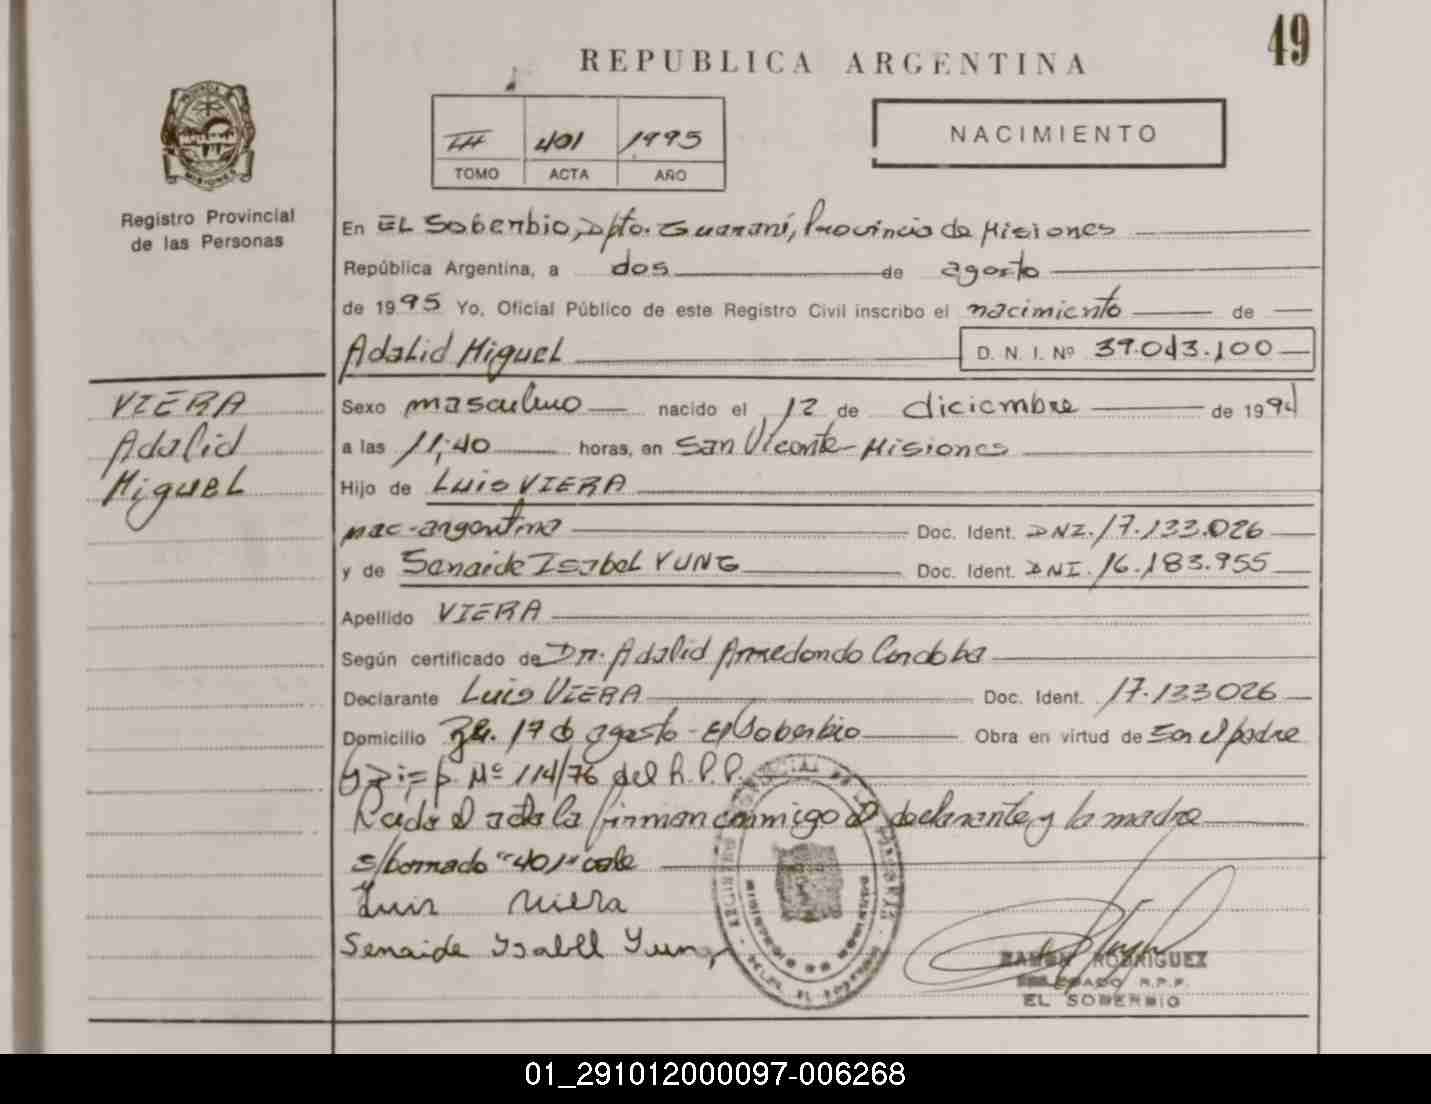 49
REPUBLICA ARGENTINA
III 401 1995
TOMO ACTA AÑO
NACIMIENTO
Registro Provincial
de las Personas
En EL Soberbio, Dpto. Guaraní, Provincia de Misiones
República Argentina, a dos de agosto
de 1995 Yo, Oficial Público de este Registro Civil inscribo el nacimiento de
Adalid Miguel D. N. I. Nº 39.043.100
VIERA
Adalid
Miguel
Sexo masculino nacido el 12 de diciembre de 1994
a las 11,40 horas, en San Vicente-Misiones
Hijo de Luis VIERA
nac-argentina Doc. Ident. DNI. 17.133.026
y de Senaide Isabel YUNG Doc. Ident. DNI. 16.183.955
Apellido VIERA
Según certificado de Dr. Adalid Arredondo Cordoba
Declarante Luis VIERA Doc. Ident. 17.133026
Domicilio 17 d agosto - El Soberbio Obra en virtud de Ser el padre
Nº 114/76 del R.P.P.
Leida el acta la firman conmigo el declarante y la madre
s/borrado "401" vale
Luis Viera
Senaide Ysabel Yung
RAMON RODRIGUEZ
DELEGADO R.P.P.
EL SOBERBIO
01_291012000097-006268